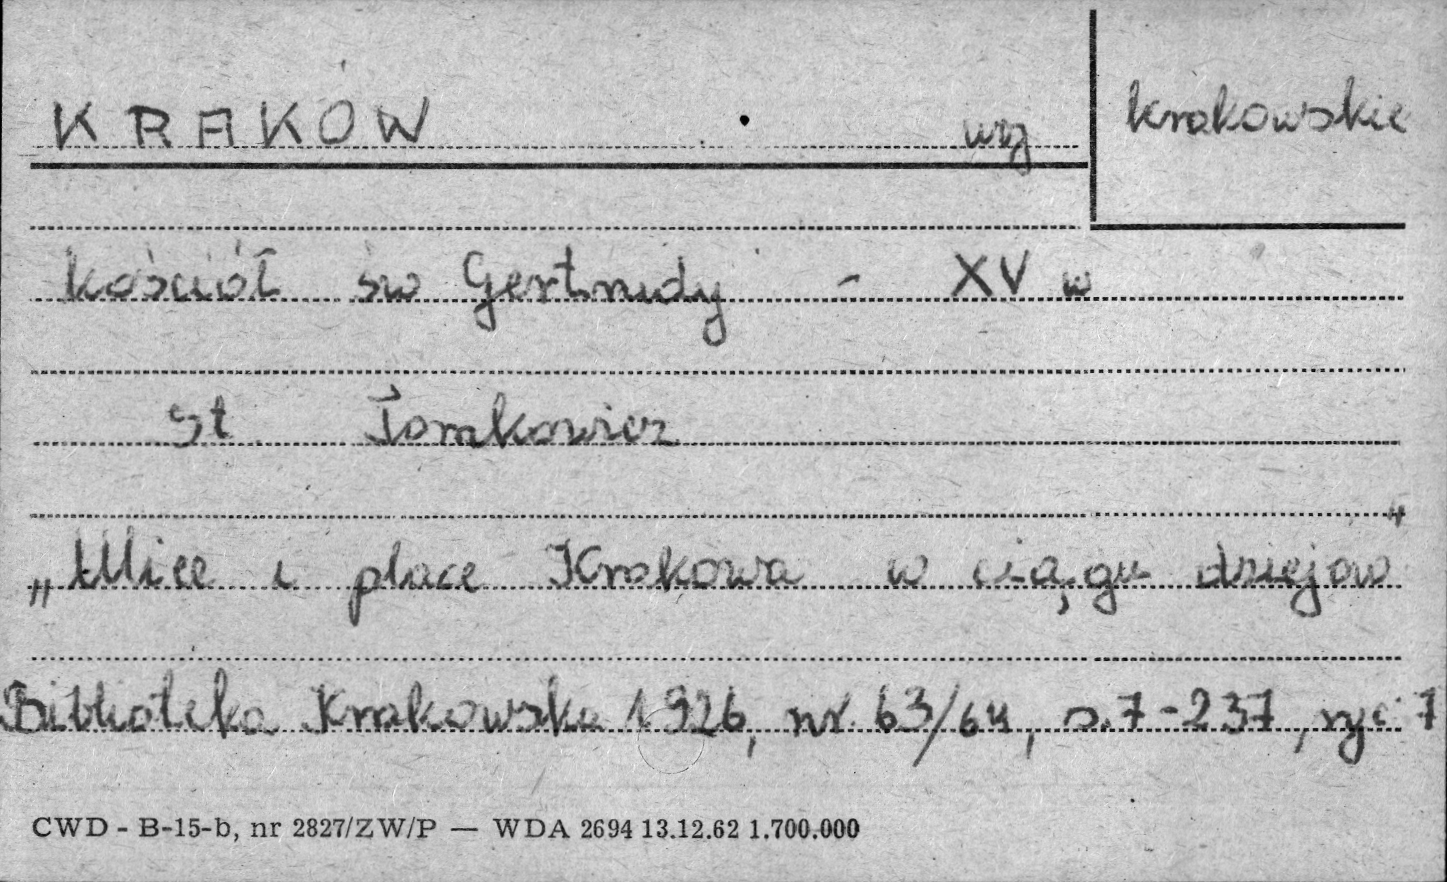 KRAKÓW wg krakowskie
kościół św Gertrudy - XV w
St Tomkowicz
„Ulice i place Krakowa w ciągu dziejów”
Biblioteka Krakowska 1926, nr 63/64, s.7-237, ryc 7
CWD - B-15-b, nr 2827/ZW/P — WDA 2694 13.12.62 1.700.000